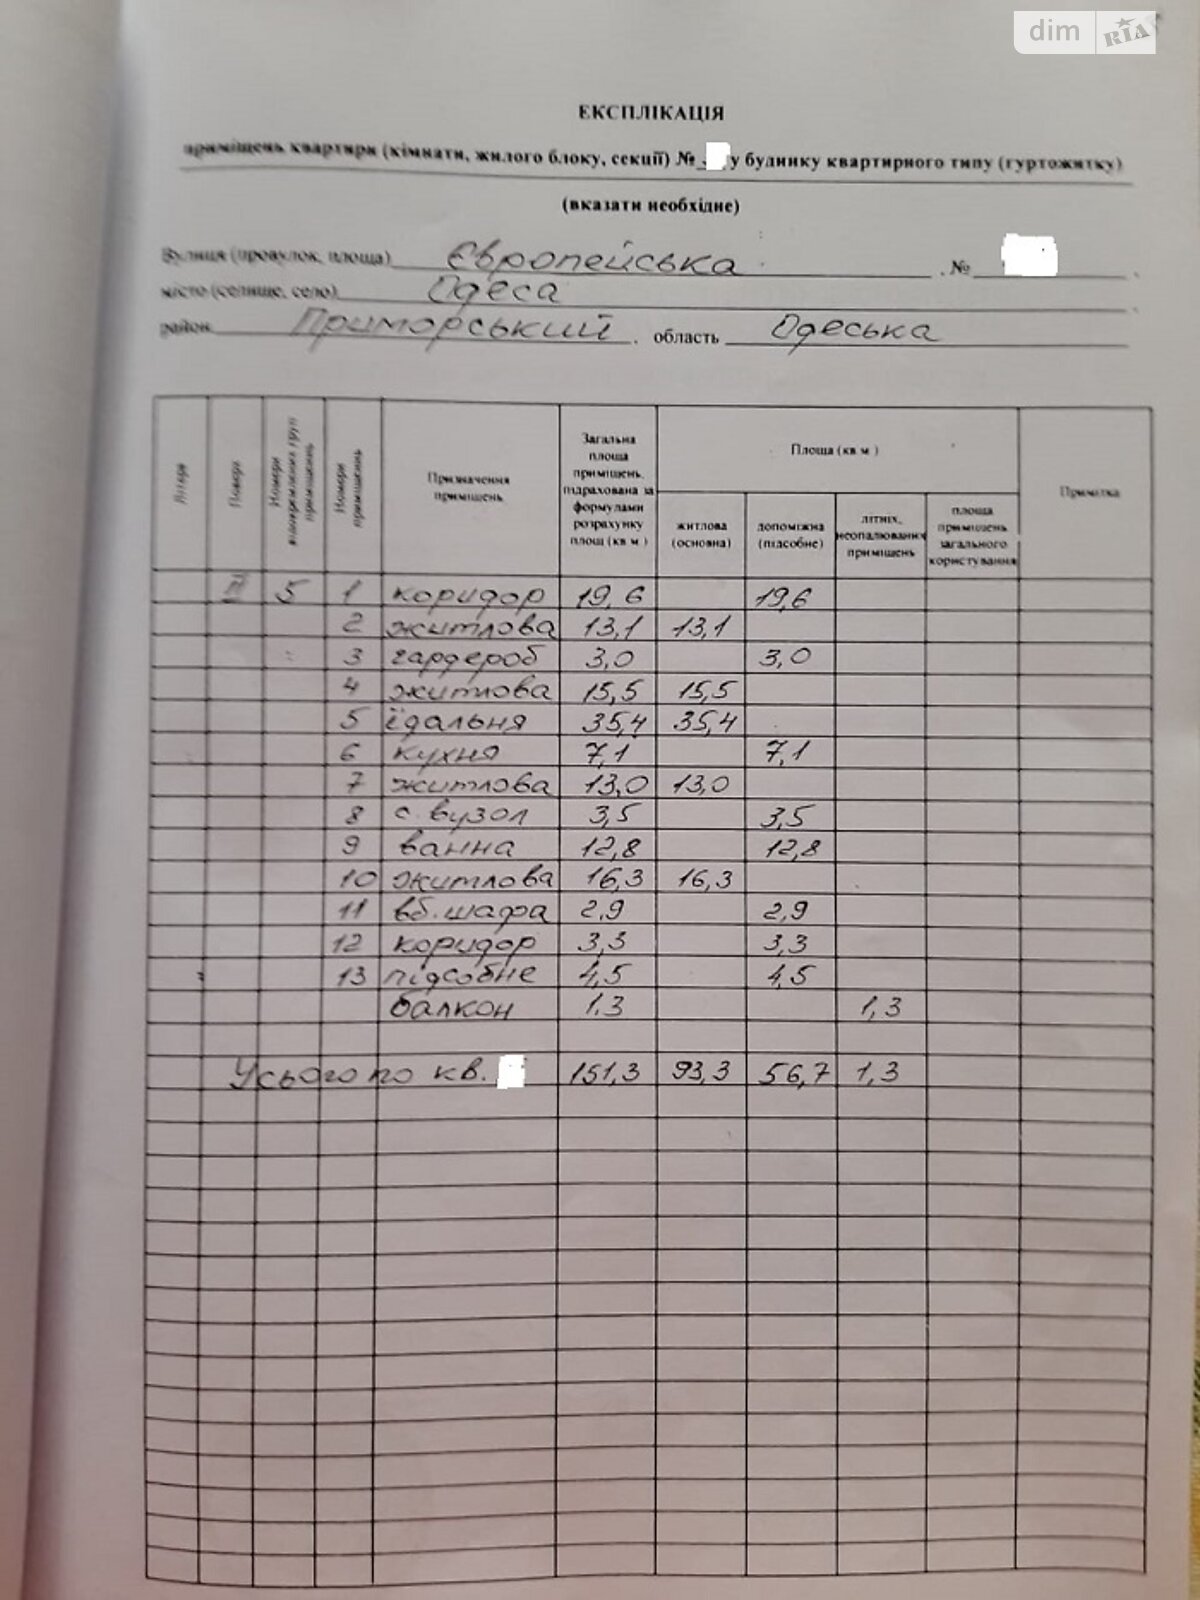 dim RIA
ЕКСПЛІКАЦІЯ
приміщень квартири (кімнати, жилого блоку, секції) № у будинку квартирного типу (гуртожитку)
(вказати необхідне)
Вулиця (провулок, площа) Європейська , №
місто (селище, село) Одеса
район Приморський , область Одеська
Літера Поверх Номери відокремлених груп приміщень Номери приміщень Призначення приміщень Загальна площа приміщень, підрахована за формулами розрахунку площ (кв м ) Площа (кв м ) Примітка
житлова (основна) допоміжна (підсобне) літніх, неопалюваних приміщень площа приміщень загального користування
5 1 коридор 19,6 19,6
2 житлова 13,1 13,1
3 гардероб 3,0 3,0
4 житлова 15,5 15,5
5 їдальня 35,4 35,4
6 кухня 7,1 7,1
7 житлова 13,0 13,0
8 с. вузол 3,5 3,5
9 ванна 12,8 12,8
10 житлова 16,3 16,3
11 вб. шафа 2,9 2,9
12 коридор 3,3 3,3
13 підсобне 4,5 4,5
балкон 1,3 1,3
Усього по кв. 151,3 93,3 56,7 1,3